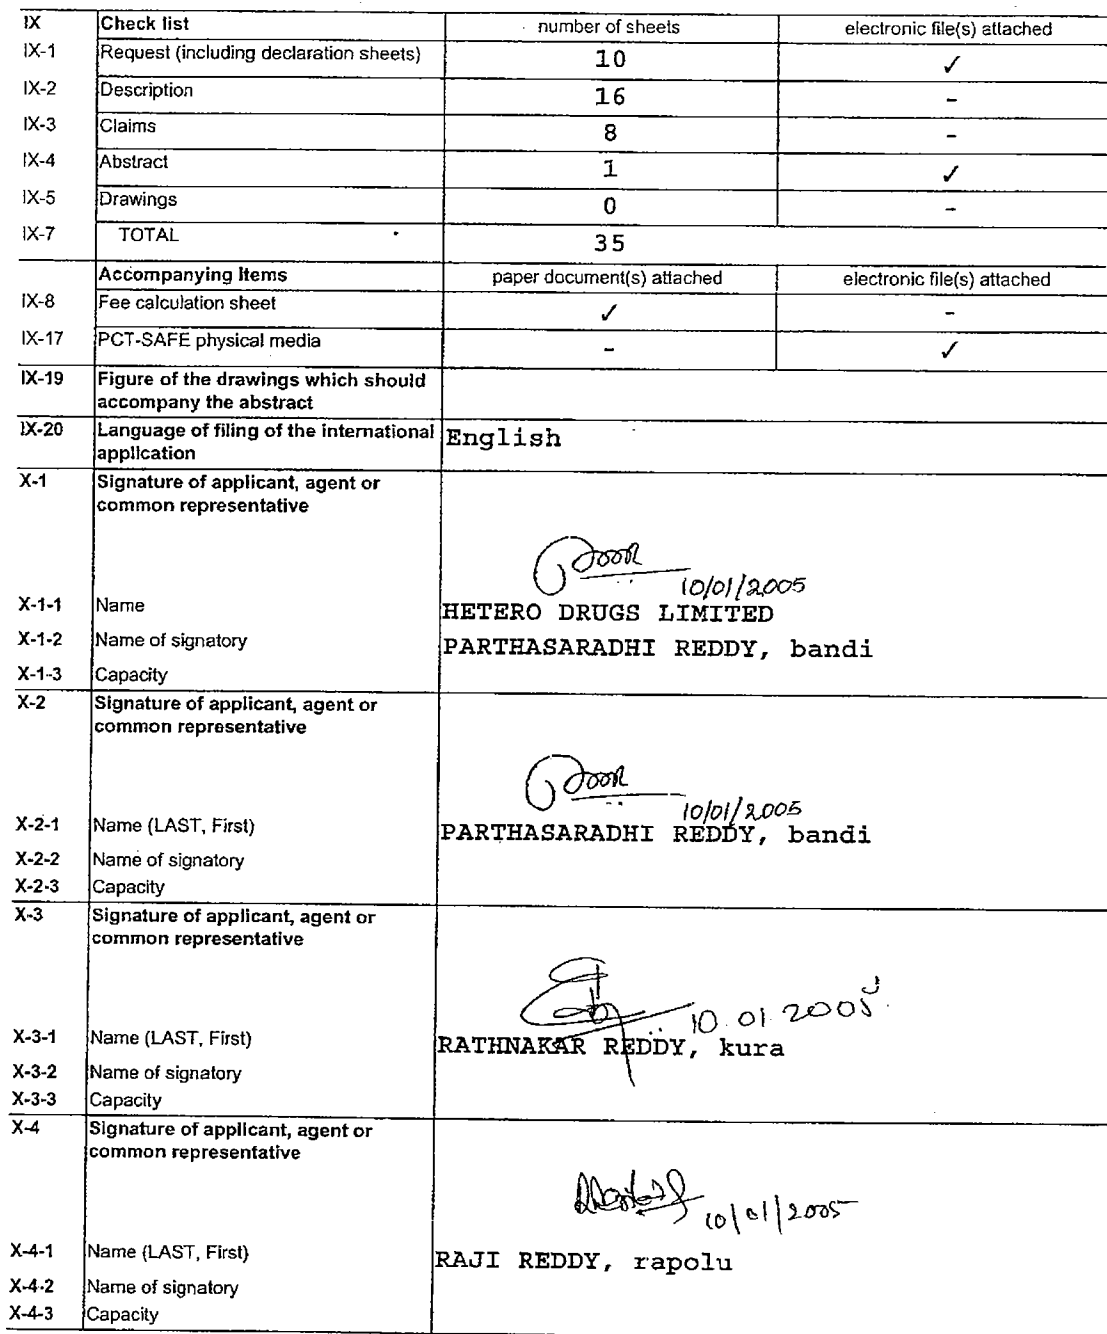 IX Check list number of sheets electronic file(s) attached
IX-1 Request (including declaration sheets) 10 ✓
IX-2 Description 16 -
IX-3 Claims 8 -
IX-4 Abstract 1 ✓
IX-5 Drawings 0 -
IX-7 TOTAL 35
Accompanying Items paper document(s) attached electronic file(s) attached
IX-8 Fee calculation sheet ✓ -
IX-17 PCT-SAFE physical media - ✓
IX-19 Figure of the drawings which should
accompany the abstract
IX-20 Language of filing of the international English
application
X-1 Signature of applicant, agent or
common representative
10/01/2005
X-1-1 Name HETERO DRUGS LIMITED
X-1-2 Name of signatory PARTHASARADHI REDDY, bandi
X-1-3 Capacity
X-2 Signature of applicant, agent or
common representative
10/01/2005
X-2-1 Name (LAST, First) PARTHASARADHI REDDY, bandi
X-2-2 Name of signatory
X-2-3 Capacity
X-3 Signature of applicant, agent or
common representative
10.01.2005
X-3-1 Name (LAST, First) RATHNAKAR REDDY, kura
X-3-2 Name of signatory
X-3-3 Capacity
X-4 Signature of applicant, agent or
common representative
10/01/2005
X-4-1 Name (LAST, First) RAJI REDDY, rapolu
X-4-2 Name of signatory
X-4-3 Capacity